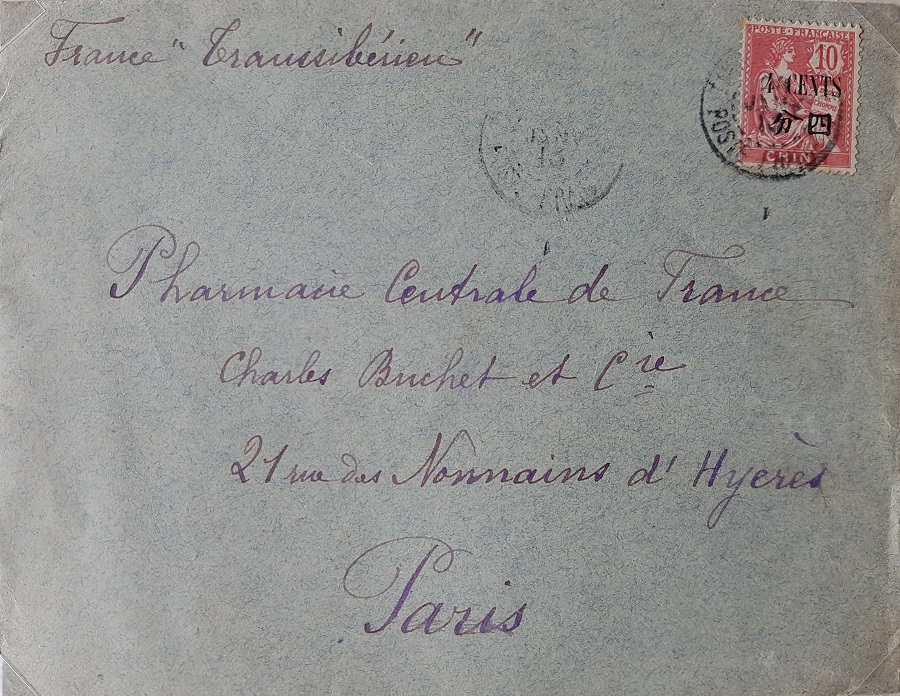 France "Transsibérien"
POSTE FRANÇAISE
10
4 CENTS
分四
CHINE
JANV
13
POSTE
Pharmacie Centrale de France
Charles Buchet et Cie
21 rue des Nonnains d'Hyères
Paris